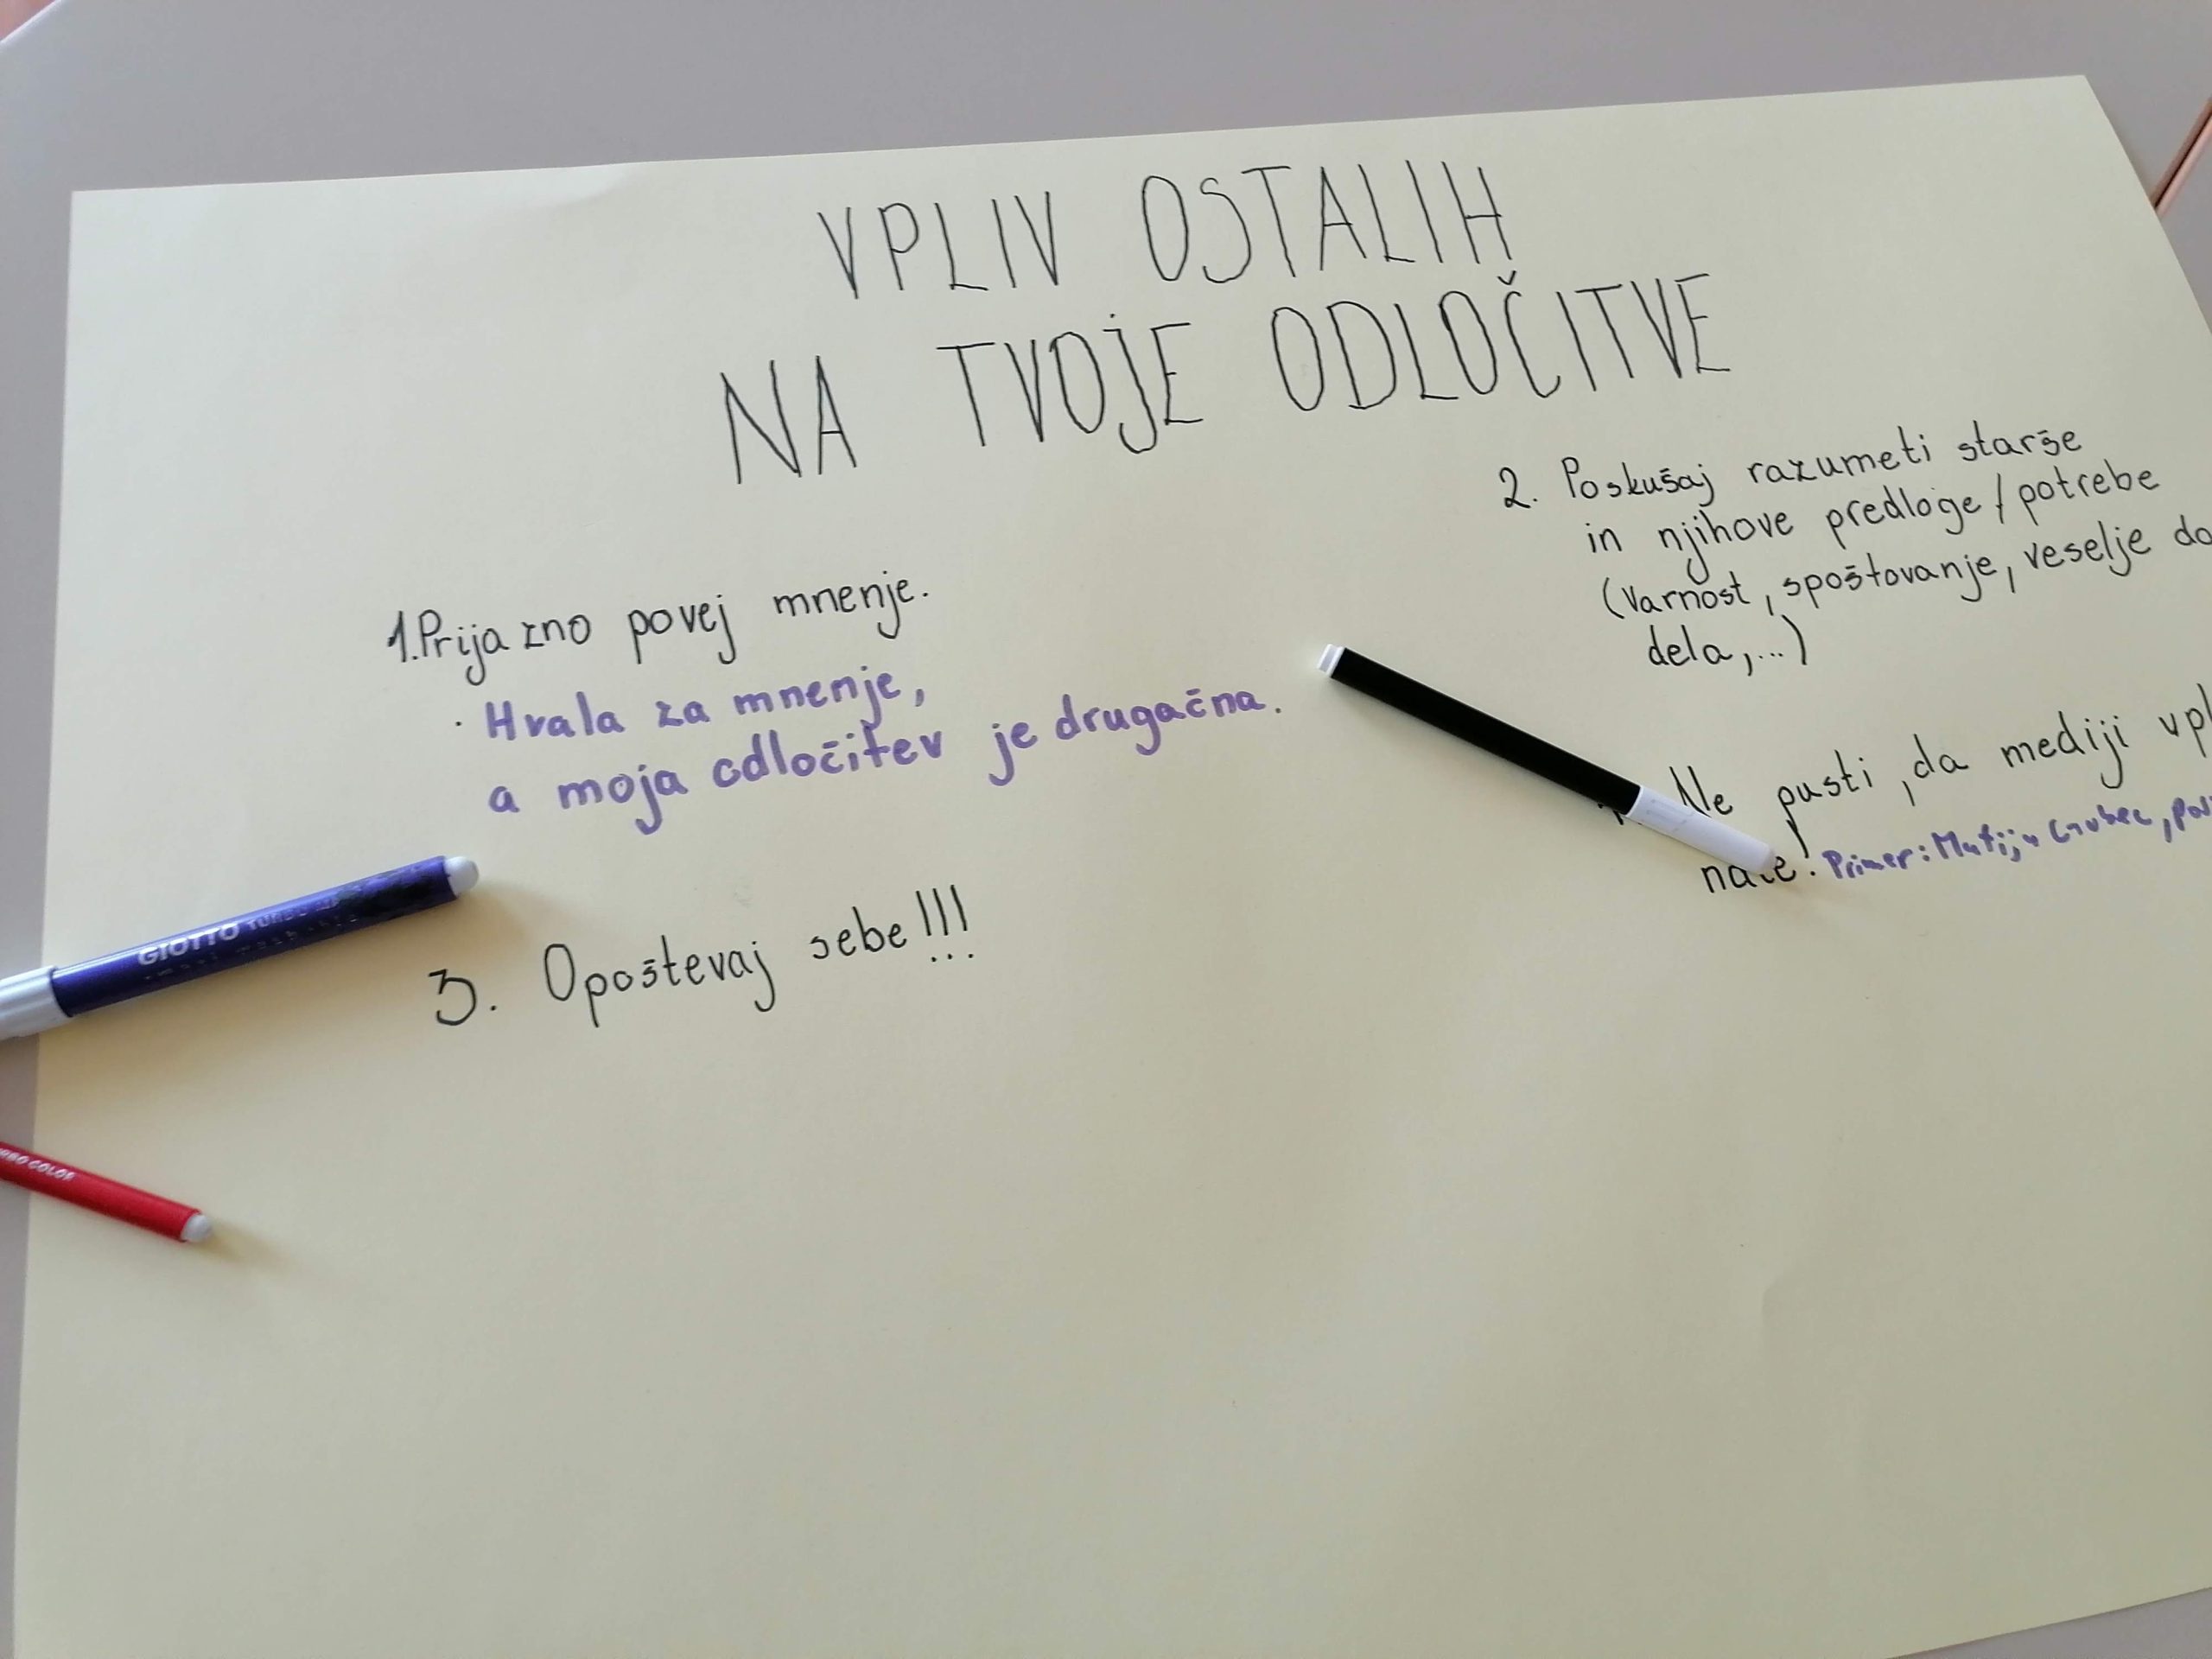 VPLIV OSTALIH
NA TVOJE ODLOČITVE
1. Prijazno povej mnenje.
· Hvala za mnenje,
a moja odločitev je drugačna.
2. Poskušaj razumeti starše
in njihove predloge / potrebe
(varnost, spoštovanje, veselje do
dela,...)
3. Opoštevaj sebe!!!
...
Ne pusti, da mediji vpl
nate! Primer: Matija
GIOTTO TURBO
RBO COLOR